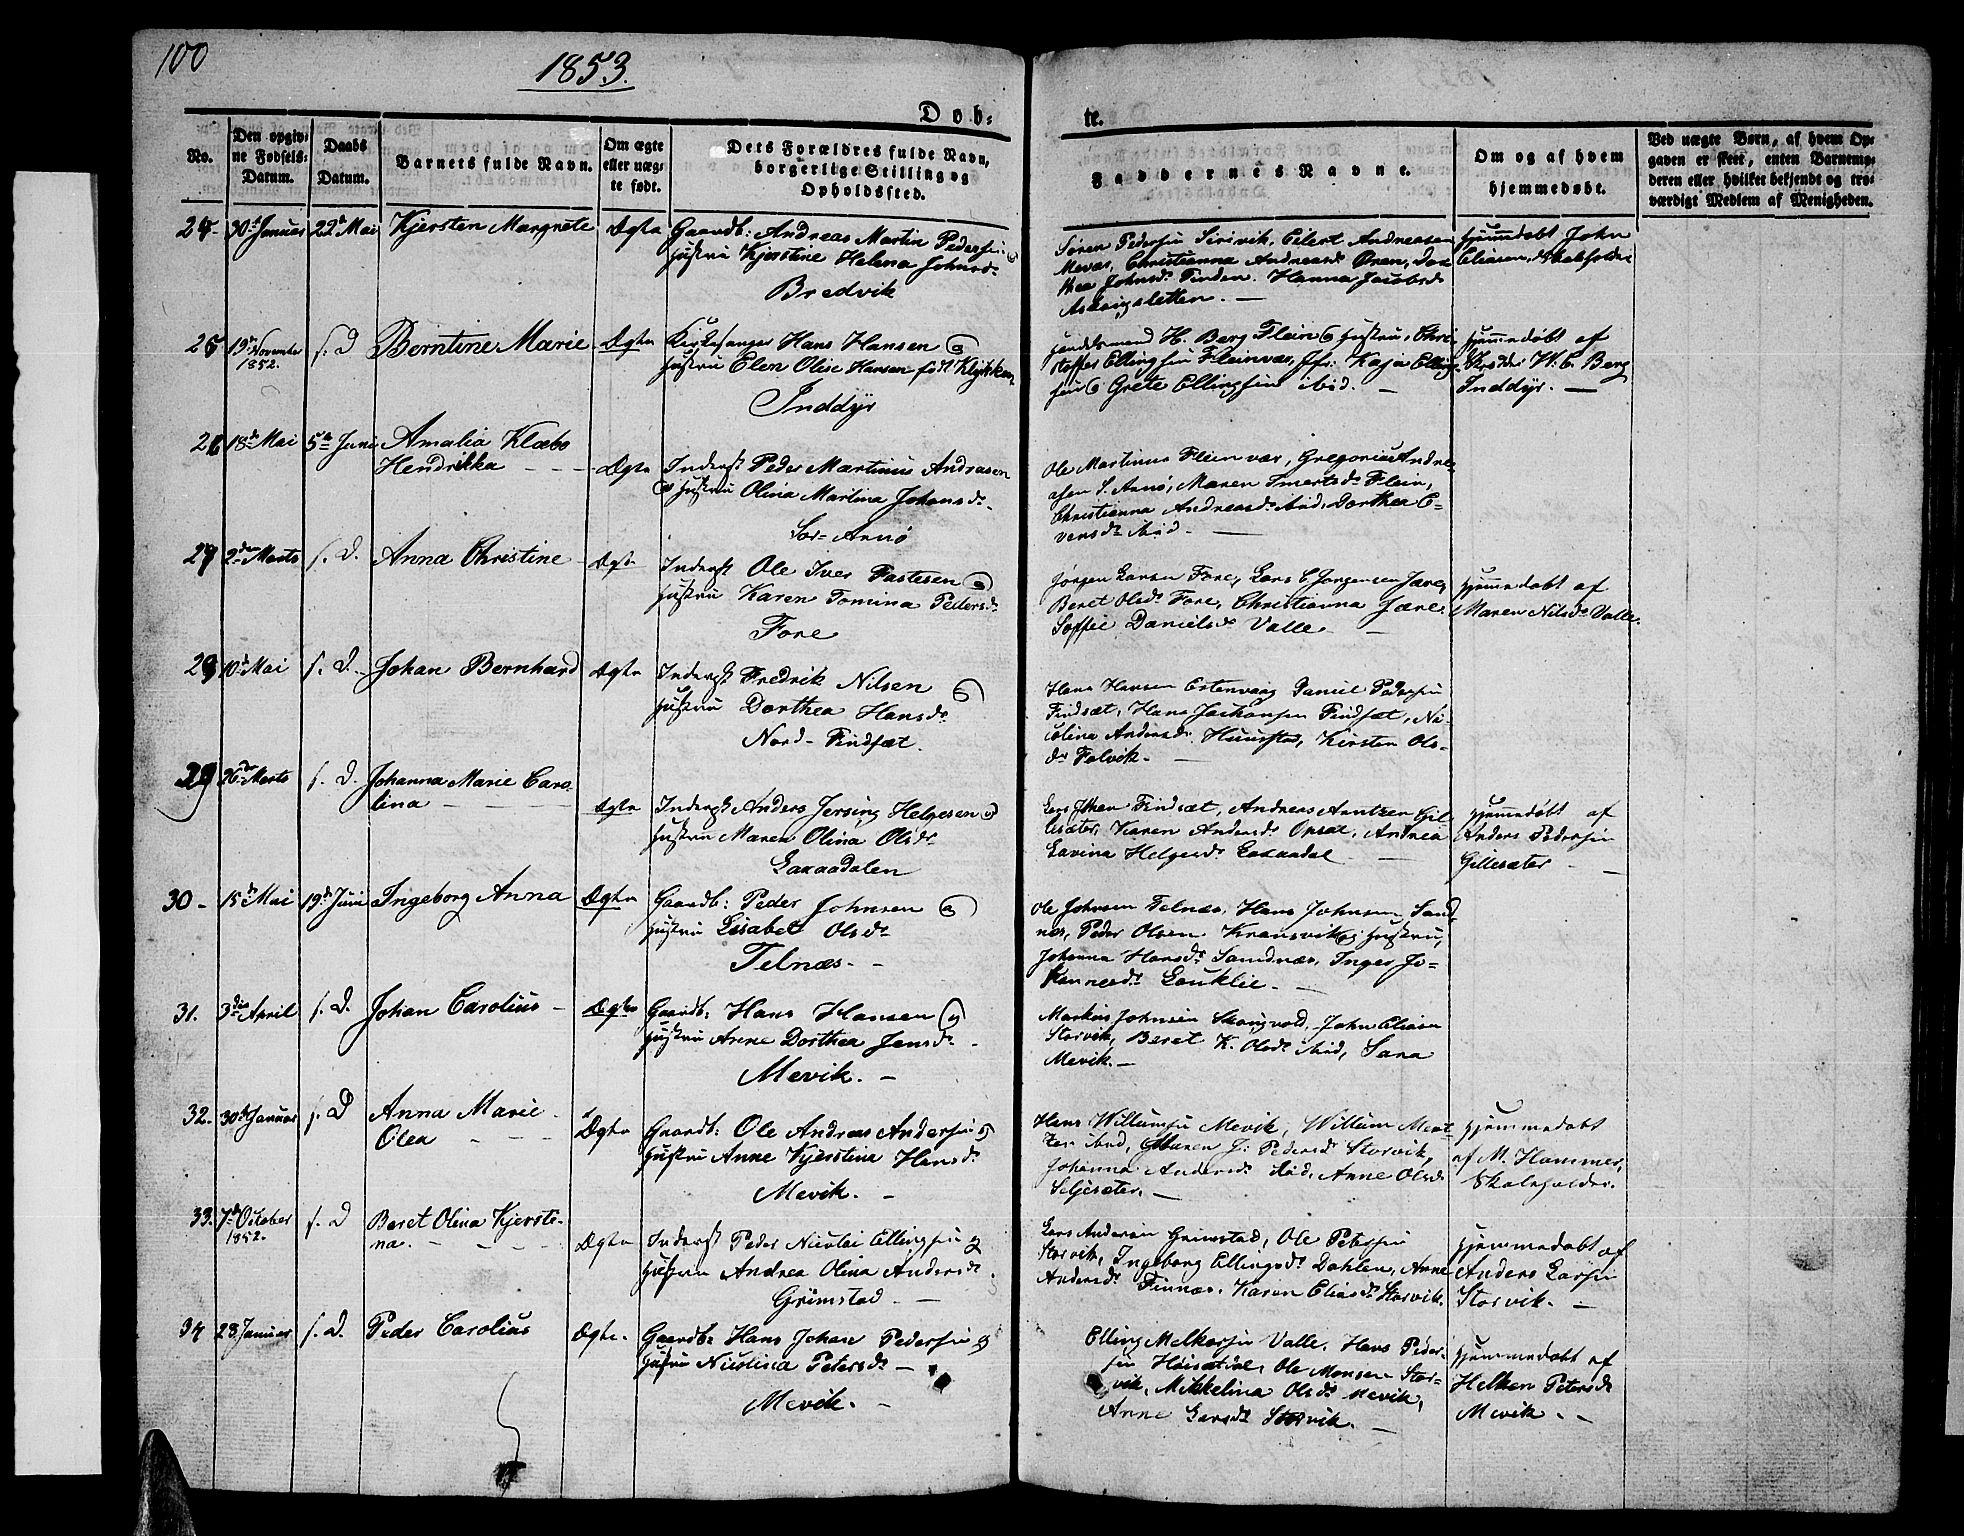 100
1853.
Døb-
te.
No.
Den opgiv-
ne Fødsels-
Datum.
Daabs
Datum.
Barnets fulde Navn.
Om ægte
eller uæg-
te født.
Dets Forældres fulde Navn,
borgerlige Stilling og
Opholdssted.
Faddernes Navne.
Om og af hvem
hjemmedøbt.
Ved uægte Børn, af hvem Op-
gaven er skeet, enten Barnemo-
deren eller hvilket bekjendt og tro-
værdigt Medlem af Menigheden.
24 30te Januar 22de Mai Kjersten Margrete Ægte Gaardb: Andreas Martin Pedersen og
Hustru Kjerstine Helena Johnsd.
Bredvik
Søren Pedersen Sørivik, Eilert Andreasen
Mevær, Christianna Andreasd. Øren, Dor-
thea Johnsd. Tinden. Hanna Jacobsd.
Askvigsletten.
Hjemmedøbt John
Eliasen, Skoleholder
25 19de November s. D Berntine Marie Ægte Kirkesanger Hans Hansen og
1852.
Hustru Elen Olise Hansen født
Inddyr
Handelsmand H. Berg Flein og Hustru, Chri-
stoffer Ellingsen Fleinvær, Jfr: Kaja Elling-
sen og Grete Ellingsen ibid.
Hjemmedøbt af
H. C. Berg
Inddyr.
26 18de Mai 5te Juni Amalia Klæbo
Hendrikka Ægte Inderst Peder Martinus Andreasen
og Hustru Olina Martina Johansd.
Sør-Arnø
Ole Martinus Fleinvær, Gregorius Andre-
asen S. Arnø, Maren Flein,
Christianna Andreasd. ibid, Dorthea E-
vensd. ibid.
27 2den Marts s. D. Anna Christine Ægte Inderst Ole Iver Pastesen og
Hustru Karen Tomina Pedersd.
Fore
Jørgen Larsen Fore, Lars C Jørgensen
Beret Olsd. Fore, Christianna
Soffie Danielsd. Valle
Hjemmedøbt af
Maren Nilsd. Valle
28 10de Mai s. D. Johan Bernhard Ægte Inderst Fredrik Nilsen og
Hustru Dorthea Hansd.
Nord-Findsæt.
Hans Hansen Estenvaag Daniel Pedersen
Findsæt, Hans Findsæt, Ni-
colina Andersd. Huustad, Kirsten Ols-
d. Falvik.
29 26de Marts s. D. Johanna Marie Caro-
lina Ægte Inderst Anders Jersing Helgesen og
Hustru Maren Olina Olsd.
Laxaadalen
Lars Findsæt, Andreas Arntzen Gil-
lesæter, Karen Andersd. Opsal, Andrea
Lavina Helgesd. Laxaadal
Hjemmedøbt af
Anders Pedersen
Gillesæter
30 15de Mai 19de Juni Ingeborg Anna Ægte Gaardb: Peder Johnsen og
Hustru Lisabet Olsd.
Telnæs.
Ole Johnsen Telnæs, Hans Johnsen Sand-
næs, Peder Olsen Kransvik og Hustru,
Johanna Hansd. Sandnæs, Inger Jo-
hannesd. Louklie.
31. 3die April s. D. Johan Carolius Ægte Gaardb: Hans Hansen og
Hustru Anne Dorthea Jensd.
Mevik.
Markus Johnsen Skougvold, John Eliasen
Storvik, Beret K. Olsd. ibid, Sara
Mevik.
32. 30te Januar s. D Anna Marie
Olea Ægte Gaardb: Ole Andreas Andersen og
Hustru Anne Kjerstina Hansd.
Mevik.
Hans Willumsen Mevik, Willum
ibid, Maren J: Pedersd. Storvik,
Johanna Andersd. ibid, Anne Olsd.
Seljesæter.
Hjemmedøbt
af M. Hammer,
Skoleholder.
33. 7de October s. D Beret Olina Kjersti-
1852.
na. Ægte Inderst Peder Nicolai Ellingsen og
Hustru Andrea Olina Andersd.
Grimstad
Lars Andersen Grimstad, Ole Petersen
Storvik, Ingeborg Ellingsd. Dahlen, Anne
Andersd. Finnæs, Karen Eliasd. Storvik.
Hjemmedøbt af
Anders Larsen
Storvik.
34 28. Januar s. D. Peder Carolius Ægte. Gaardb: Hans Johan Pedersen og
Hustru Nicolina Petersd.
Mevik.
Elling Melkersen Valle, Hans Peder-
sen Ole Monsen Stor-
vik, Mikkelina Olsd. Mevik,
Anne Larsd. Storvik.
Hjemmedøbt af
Petersd.
Mevik.